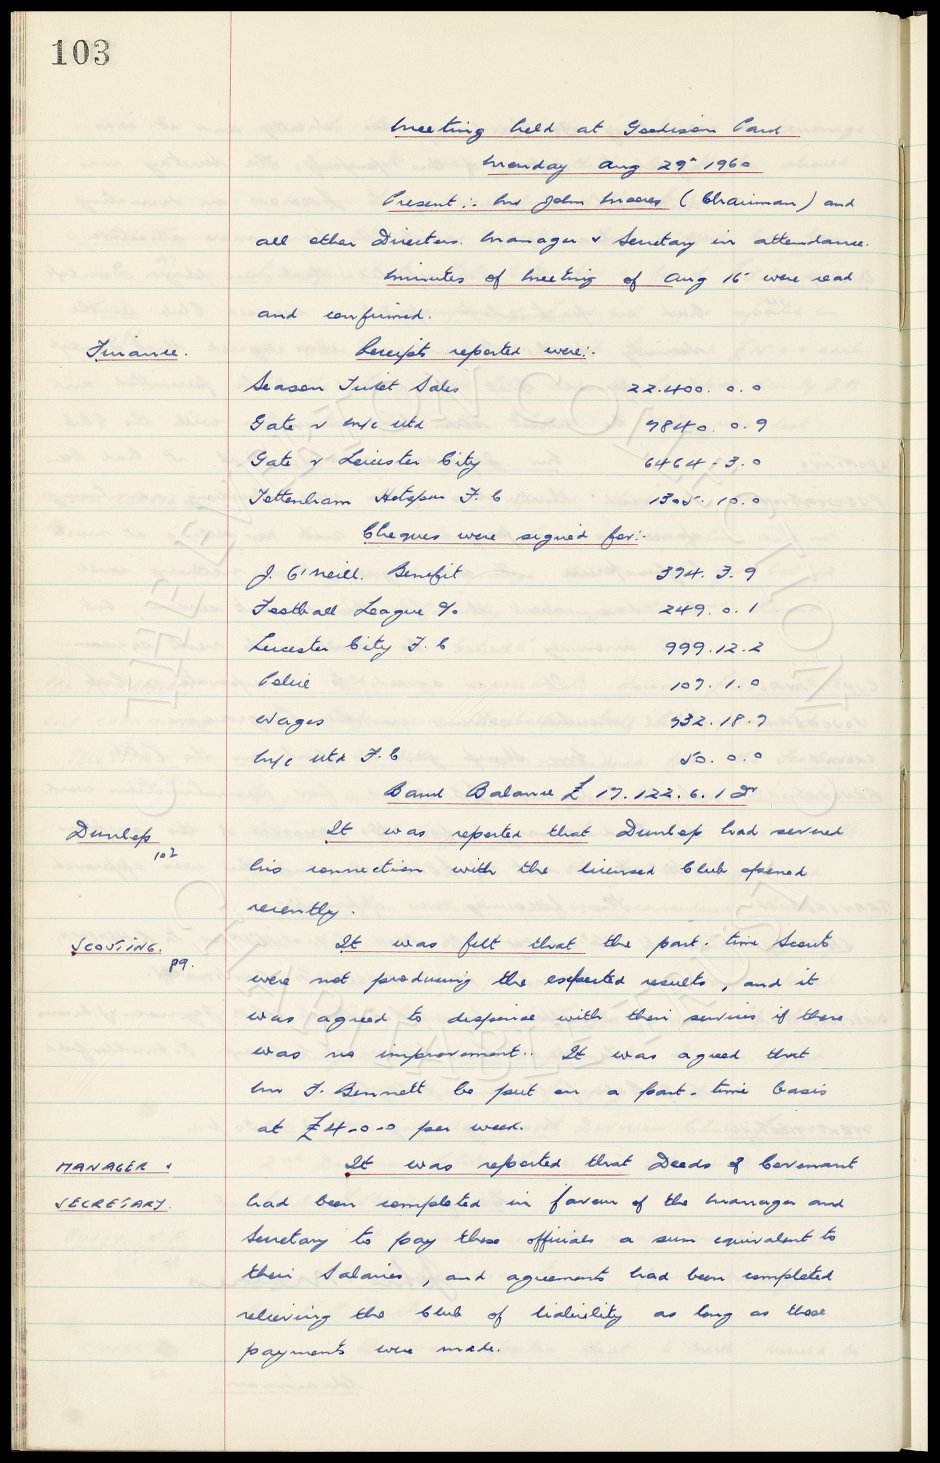 103
Meeting held at Goodison Park
Monday Aug 29th 1960
Present:- Mr John Moores (Chairman) and
all other Directors. Manager & Secretary in attendance.
Minutes of Meeting of Aug 16 were read
and confirmed.
Finance. Receipts reported were:-
Season Ticket Sales 22.400. 0. 0
Gate v M/c Utd 7840. 0. 9
Gate v Leicester City 6464. 3. 0
Tottenham Hotspur F. C 1305. 10. 0
Cheques were signed for:-
J. O'Neill. Benefit 374. 3. 9
Football League % 249. 0. 1
Leicester City F. C 999. 12. 2
Police 107. 1. 0
Wages 732. 18. 7
M/c Utd F. C 50. 0. 0
Bank Balance £ 17. 122. 6. 1 Dr
Dunlop It was reported that Dunlop had severed
102
his connection with the licensed Club opened
recently.
SCOUTING. It was felt that the part-time Scouts
89.
were not producing the expected results, and it
was agreed to dispense with their services if there
was no improvement. It was agreed that
Mr F. Bennett be put on a part-time basis
at £4-0-0 per week.
MANAGER & It was reported that Deeds of Covenant
SECRETARY. had been completed in favour of the Manager and
Secretary to pay these officials a sum equivalent to
their Salaries, and agreements had been completed
relieving the Club of liability as long as these
payments were made.
THE EVERTON COLLECTION
CHARITABLE TRUST